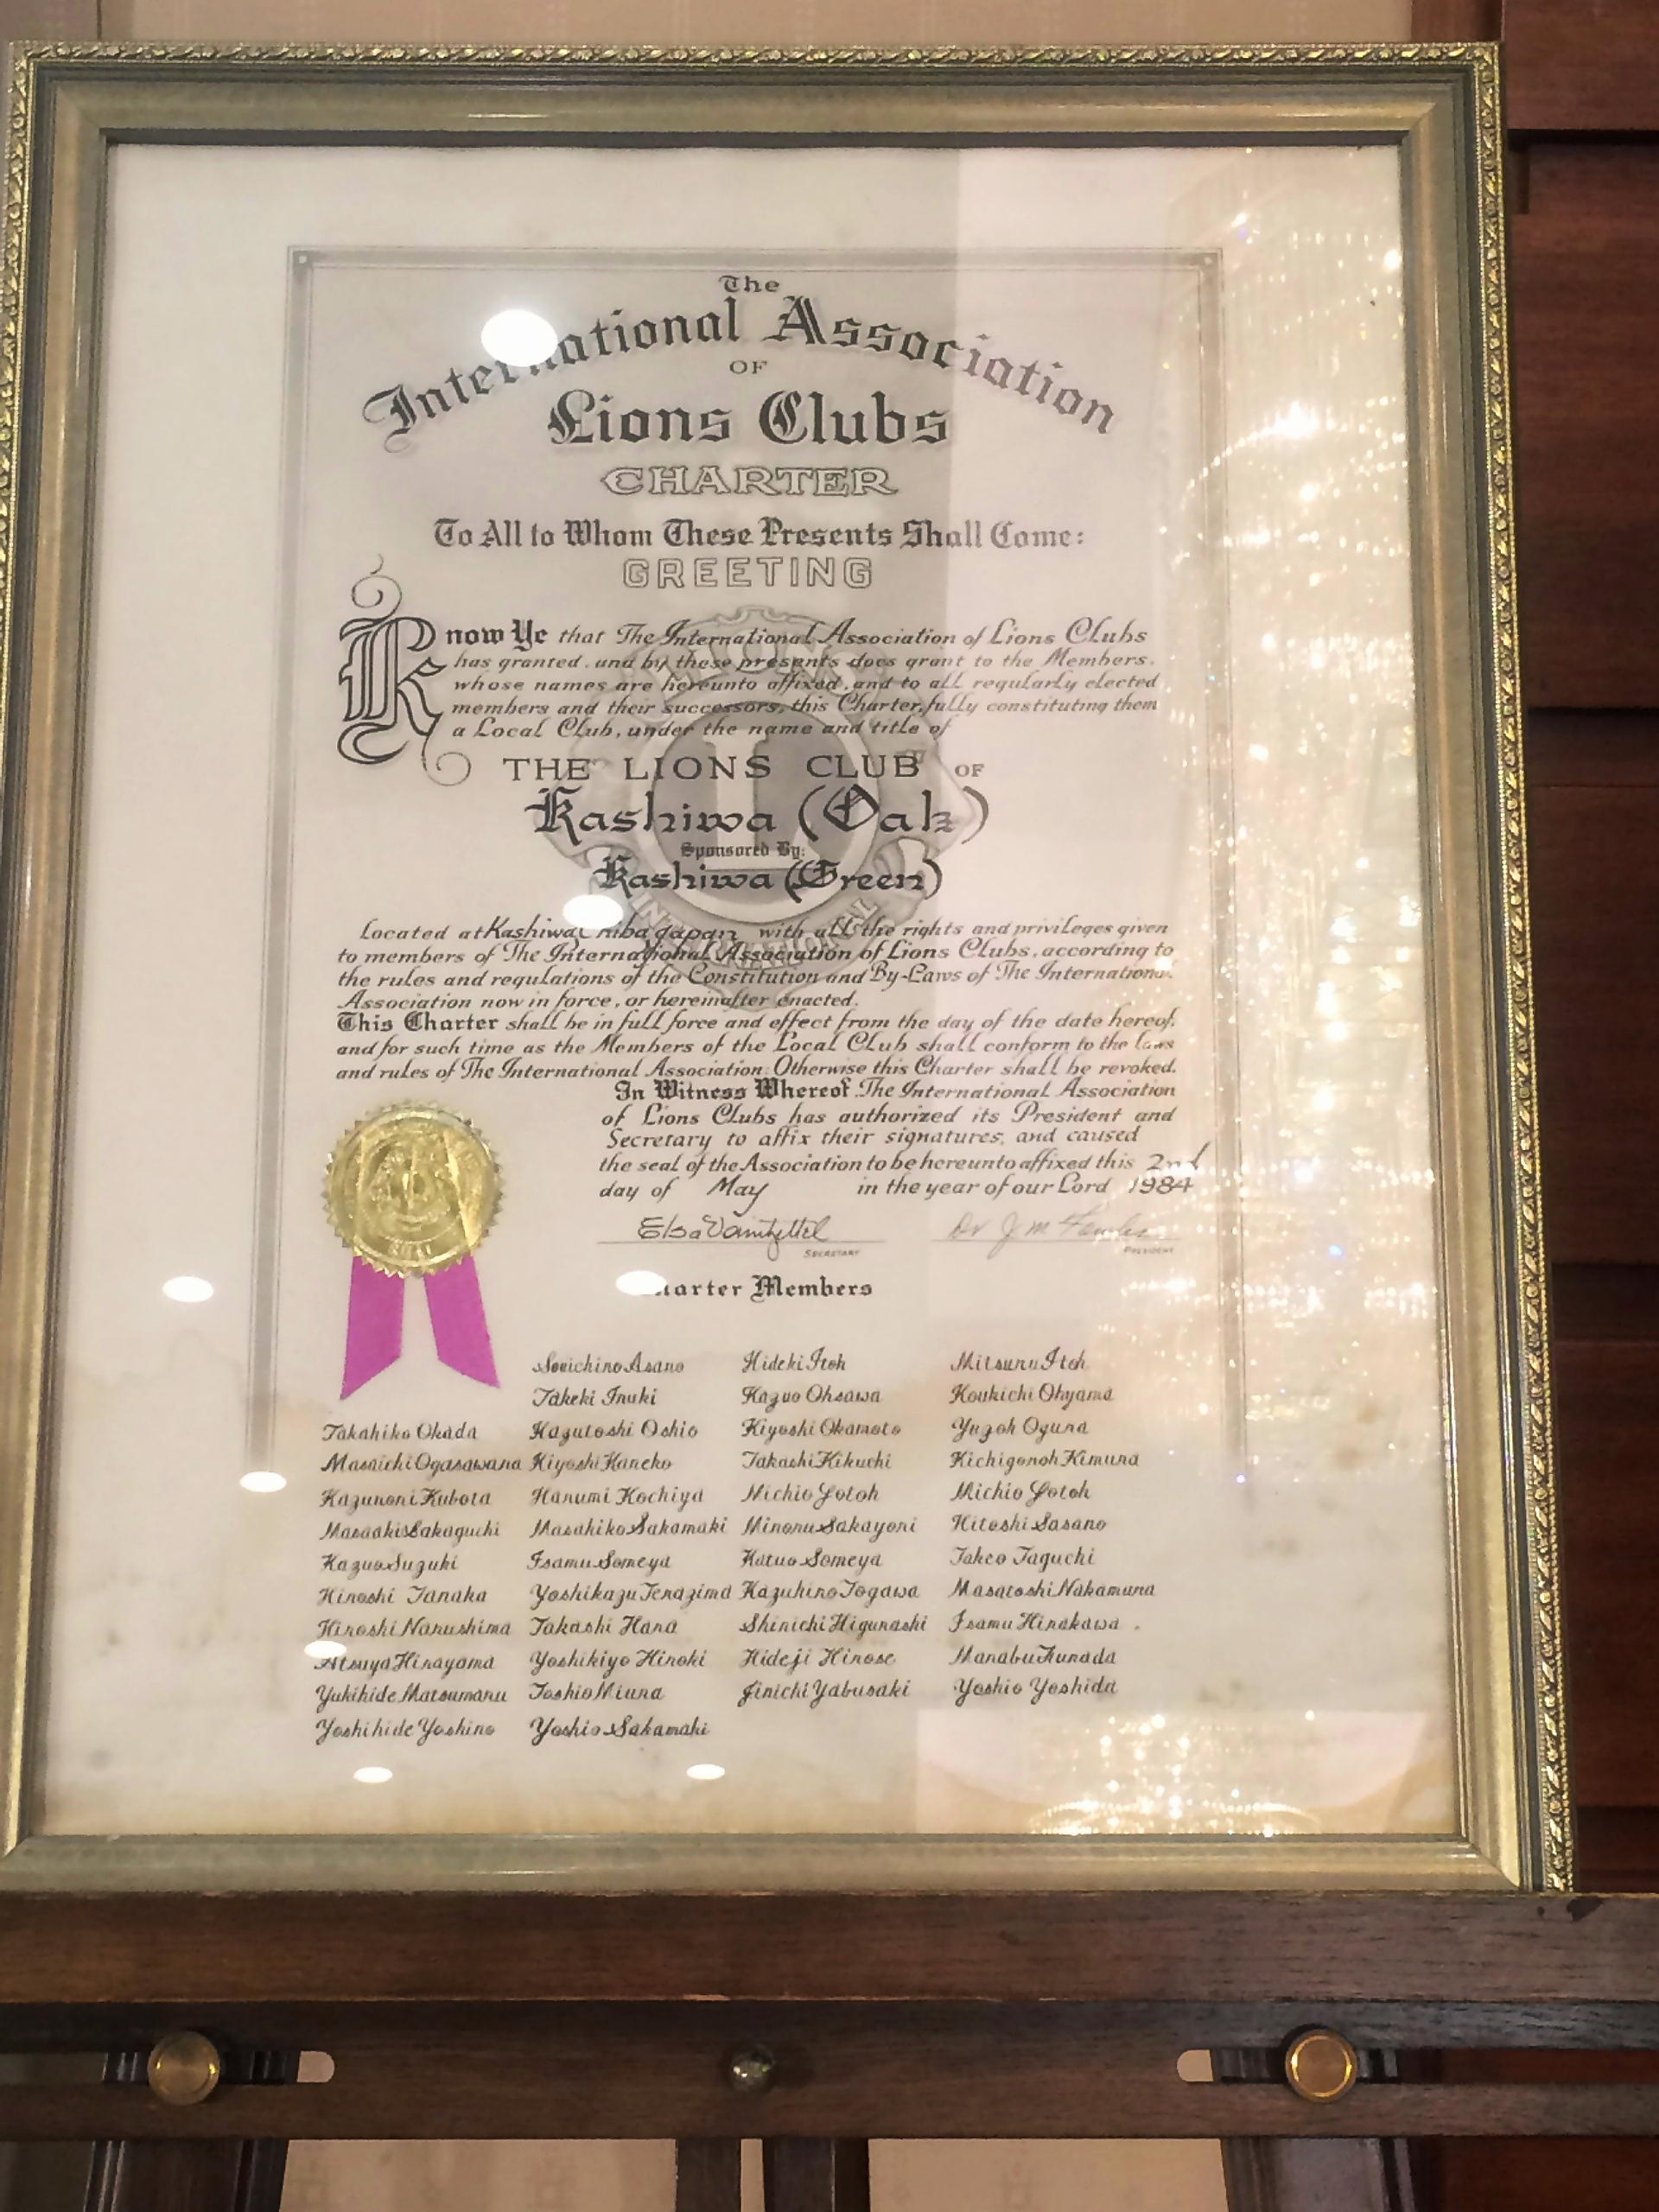 The
International Association
OF
Lions Clubs
CHARTER
To All to Whom These Presents Shall Come:
GREETING
Know Ye that The International Association of Lions Clubs
has granted, and by these presents does grant to the Members,
whose names are hereunto affixed, and to all regularly elected
members and their successors, this Charter, fully constituting them
a Local Club, under the name and title of
THE LIONS CLUB OF
Kashiwa (Oak)
Sponsored By:
Kashiwa (Green)
Located at Kashiwa Chiba Japan with all the rights and privileges given
to members of The International Association of Lions Clubs, according to
the rules and regulations of the Constitution and By-Laws of The International
Association now in force, or hereinafter enacted.
This Charter shall be in full force and effect from the day of the date hereof,
and for such time as the Members of the Local Club shall conform to the laws
and rules of The International Association: Otherwise this Charter shall be revoked.
In Witness Whereof, The International Association
of Lions Clubs has authorized its President and
Secretary to affix their signatures, and caused
the seal of the Association to be hereunto affixed this 2nd
day of May in the year of our Lord 1984
SECRETARY PRESIDENT
Charter Members
Asano Hideki Itoh Mitsuru Itoh
Takeki Inuki Kazuo Ohsawa Koukichi Ohyama
Takahiko Okada Kazutoshi Oshio Kiyoshi Okamoto Yuzoh Ogura
Masaichi Ogasawara Kiyoshi Kaneko Takashi Kikuchi Kichigoroh Kimura
Kazunori Kubota Harumi Kochiya Michio Gotoh Michio Gotoh
Masaaki Sakaguchi Masahiko Sakamaki Minoru Sakayori Hitoshi Sasano
Kazuo Suzuki Isamu Someya Katuo Someya Takeo Taguchi
Hiroshi Tanaka Yoshikazu Terazima Kazuhiro Togawa Masatoshi Nakamura
Hiroshi Narushima Takashi Hara Shinichi Higurashi Isamu Hirakawa
Atsuya Hirayama Yoshikiyo Hiroki Hideji Hirose Manabu Funada
Yukihide Matsumaru Toshio Miura Jinichi Yabusaki Yoshio Yoshida
Yoshihide Yoshino Yoshio Sakamaki